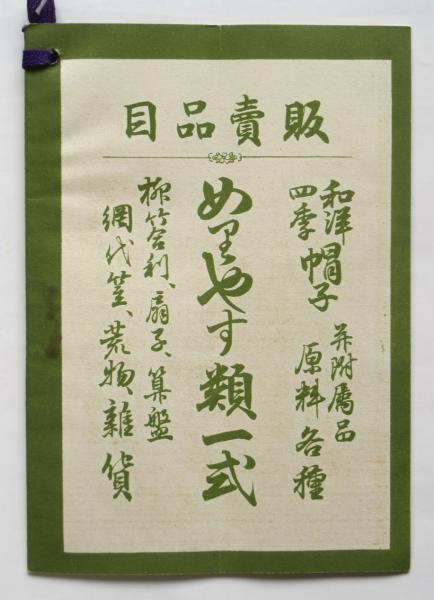 販賣品目
和洋四季帽子
并附属品
原料各種
めりやす類一式
柳竹合利、扇子、算盤
網代笠、荒物雜貨